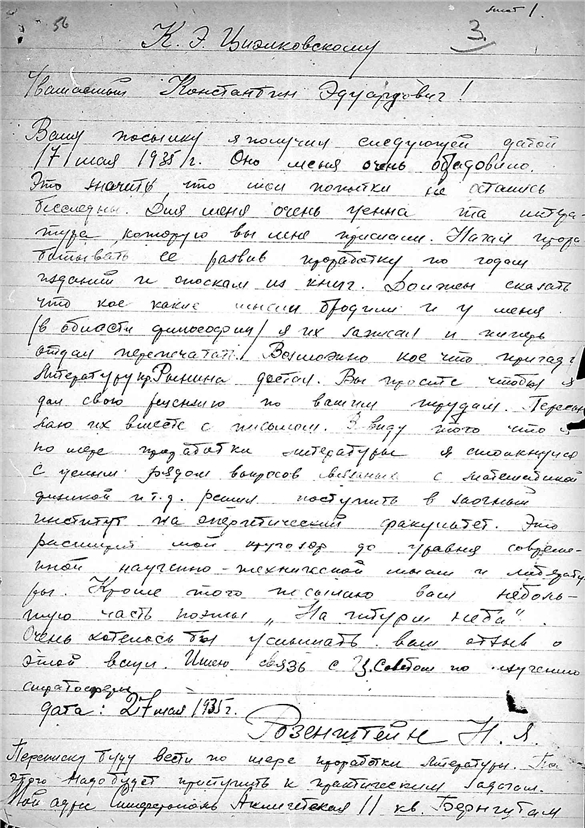 56
лист 1.
3.
К. Э. Циолковскому
Уважаемый Константин Эдуардович!
Вашу посылку я получил следующей датой
17 мая 1935 г. Оно меня очень обрадовило.
Это значить что мои попытки не остались
бесследны. Для меня очень ценна та литера
тура, которую вы мне прислали. Начал прора
батывать ее развив проработку по годам
изданий и сноскам из книг. Должен сказать
что кое какие мысли бродили и у меня
(в области философии) я их записал и теперь
отдал перепечатать. Возможно кое что пригод
Литературу пр. Рынина достал. Вы просите чтобы я
дал свою рецензию по вашим трудам. Пересы
лаю их вместе с письмом. В виду того что я
по мере проработки литературы я столкнулся
с целым рядом вопросов связаных с математикой
физикой и т.д. решил поступить в заочный
институт на энергетический факультет. Это
расширит мой кругозор до уравня совреме-
нной научно-технической мысли и литерату
ры. Кроме того посылаю вам неболь-
шую часть поэмы „На штурм неба".
Очень хотелось бы услышать ваш отзыв о
этой вещи. Имею связь с Ц. Советом по изучению
стратосферы
дата: 27 мая 1935 г.
Розенштейн Н. Я.
Переписку буду вести по мере проработки литературы.
этого надо будет приступить к практическим задачам.
Мой адрес Симферополь 11 кв.